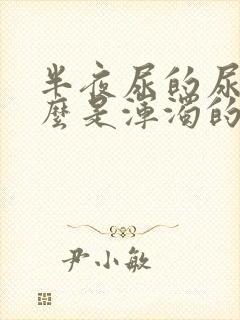 半夜尿的尿
麼是渾濁的
尹小敏